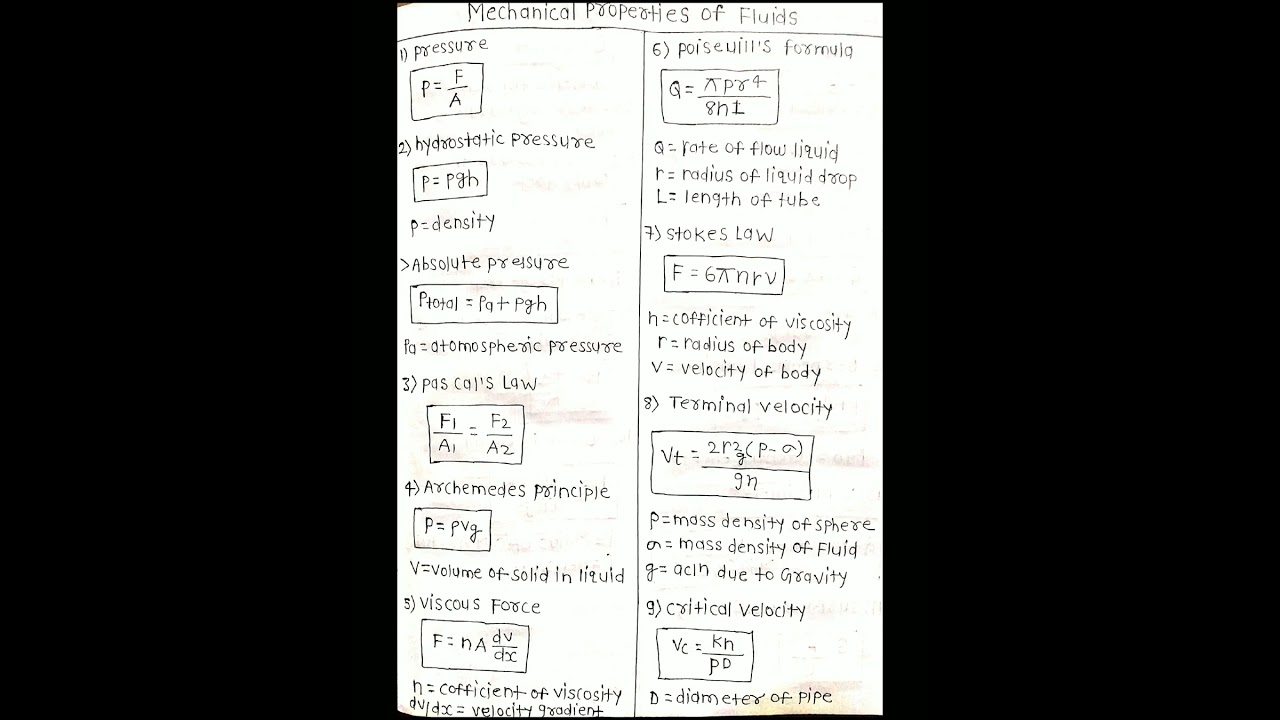 Mechanical Properties of Fluids
1) pressure
P = F/A
2) hydrostatic pressure
P = ρgh
ρ = density
>Absolute pressure
Ptotal = Pa + ρgh
Pa = atomospheric pressure
3) pascal's Law
F1/A1 = F2/A2
4) Archemedes principle
P = ρvg
V = volume of solid in liquid
5) Viscous Force
F = nA dv/dx
n = cofficient of viscosity
dv/dx = velocity gradient
6) poiseuill's formula
Q = πpr4/8nL
Q = rate of flow liquid
r = radius of liquid drop
L = length of tube
7) Stokes Law
F = 6πnrv
n = cofficient of viscosity
r = radius of body
V = velocity of body
8) Terminal velocity
Vt = 2r2g(ρ-σ)/9n
ρ = mass density of sphere
σ = mass density of Fluid
g = acln due to Gravity
9) Critical Velocity
Vc = Kn/ρD
D = diameter of pipe